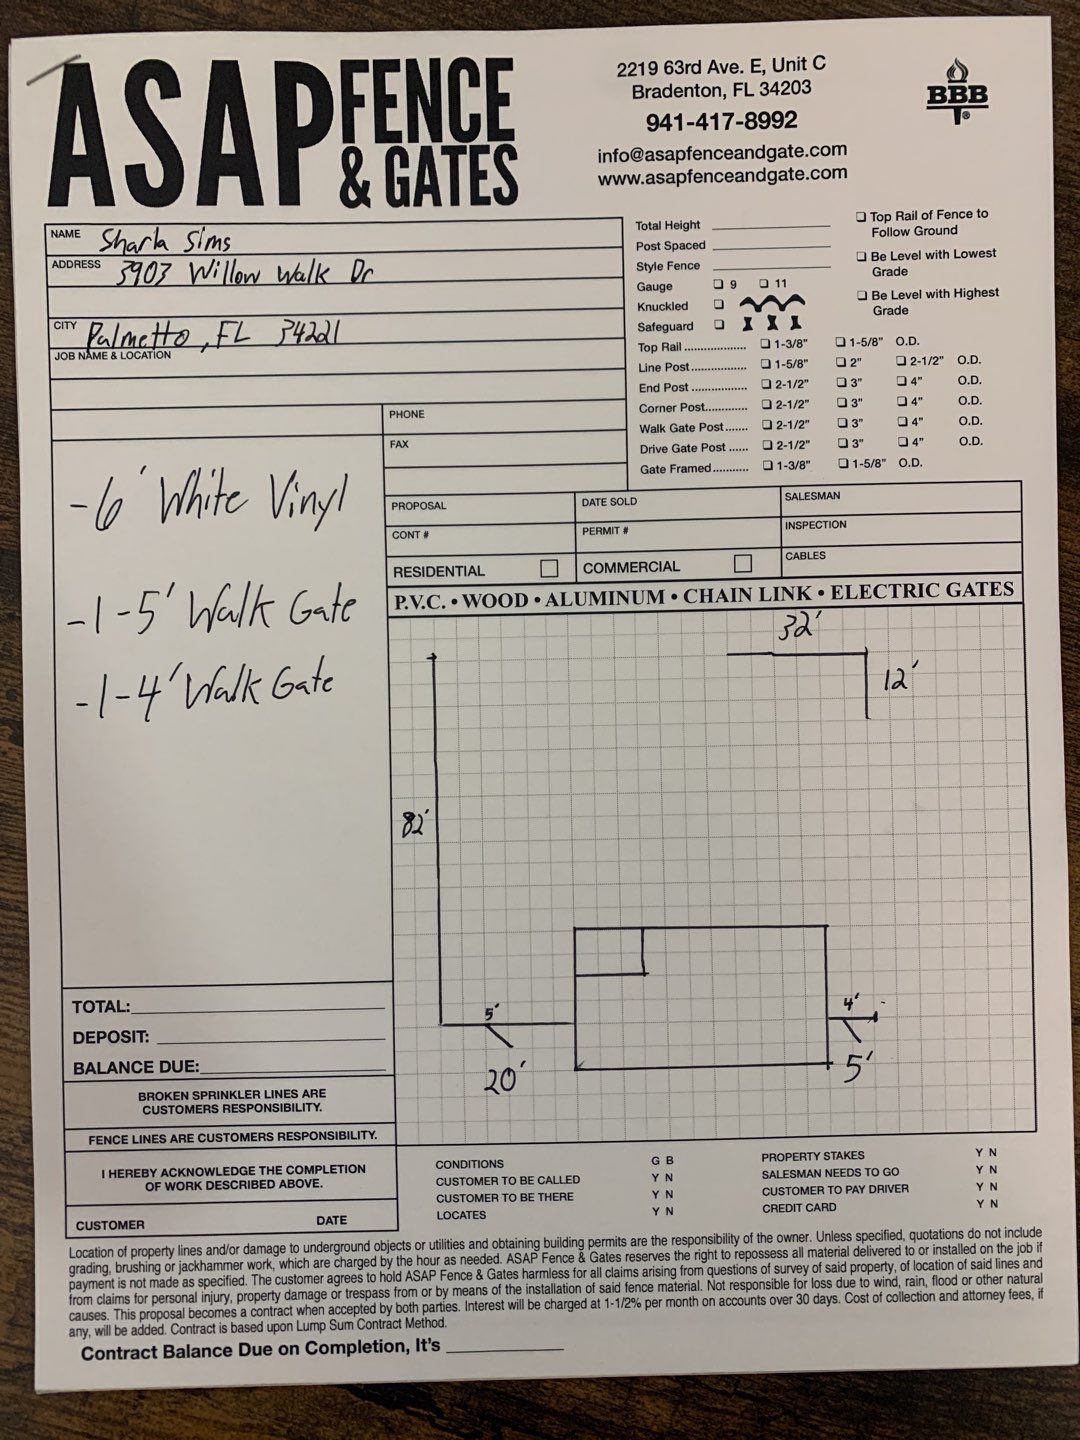 ASAP FENCE & GATES
2219 63rd Ave. E, Unit C
Bradenton, FL 34203
941-417-8992
info@asapfenceandgate.com
www.asapfenceandgate.com
BBB
®
NAME Sharla Sims
ADDRESS 3903 Willow Walk Dr
CITY Palmetto, FL 34221
JOB NAME & LOCATION
PHONE
FAX
Total Height
Post Spaced
Style Fence
Gauge 9 11
Knuckled
Safeguard
Top Rail of Fence to
Follow Ground
Be Level with Lowest
Grade
Be Level with Highest
Grade
Top Rail .................. 1-3/8" 1-5/8" O.D.
Line Post ................. 1-5/8" 2" 2-1/2" O.D.
End Post ................. 2-1/2" 3" 4" O.D.
Corner Post............. 2-1/2" 3" 4" O.D.
Walk Gate Post ....... 2-1/2" 3" 4" O.D.
Drive Gate Post ...... 2-1/2" 3" 4" O.D.
Gate Framed........... 1-3/8" 1-5/8" O.D.
PROPOSAL DATE SOLD SALESMAN
CONT # PERMIT # INSPECTION
RESIDENTIAL COMMERCIAL CABLES
P.V.C. • WOOD • ALUMINUM • CHAIN LINK • ELECTRIC GATES
-6' White Vinyl
-1-5' Walk Gate
-1-4' Walk Gate
32'
12'
82'
5'
4'
20'
5'
TOTAL:
DEPOSIT:
BALANCE DUE:
BROKEN SPRINKLER LINES ARE
CUSTOMERS RESPONSIBILITY.
FENCE LINES ARE CUSTOMERS RESPONSIBILITY.
I HEREBY ACKNOWLEDGE THE COMPLETION
OF WORK DESCRIBED ABOVE.
CUSTOMER DATE
CONDITIONS G B
CUSTOMER TO BE CALLED Y N
CUSTOMER TO BE THERE Y N
LOCATES Y N
PROPERTY STAKES Y N
SALESMAN NEEDS TO GO Y N
CUSTOMER TO PAY DRIVER Y N
CREDIT CARD Y N
Location of property lines and/or damage to underground objects or utilities and obtaining building permits are the responsibility of the owner. Unless specified, quotations do not include
grading, brushing or jackhammer work, which are charged by the hour as needed. ASAP Fence & Gates reserves the right to repossess all material delivered to or installed on the job if
payment is not made as specified. The customer agrees to hold ASAP Fence & Gates harmless for all claims arising from questions of survey of said property, of location of said lines and
from claims for personal injury, property damage or trespass from or by means of the installation of said fence material. Not responsible for loss due to wind, rain, flood or other natural
causes. This proposal becomes a contract when accepted by both parties. Interest will be charged at 1-1/2% per month on accounts over 30 days. Cost of collection and attorney fees, if
any, will be added. Contract is based upon Lump Sum Contract Method.
Contract Balance Due on Completion, It's